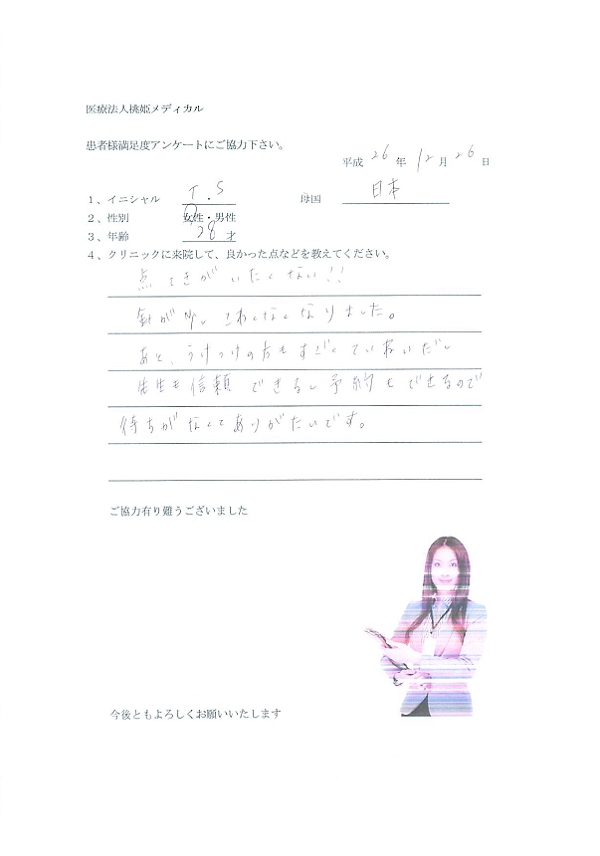 医療法人桃姫メディカル
患者様満足度アンケートにご協力下さい。
平成 26 年 12 月 26 日
1、イニシャル T.S 母国 日本
2、性別 女性・男性
3、年齢 28 才
4、クリニックに来院して、良かった点などを教えてください。
点てきがいたくない!!
針が こわくなくなりました。
あと、うけつけの方もすごくていねいだし
先生も信頼できるし予約もできるので
待ちがなくてありがたいです。
ご協力有り難うございました
今後ともよろしくお願いいたします